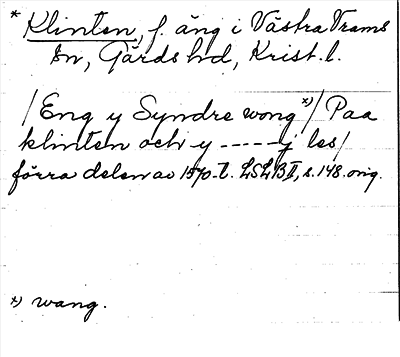 * Klinten, f. äng i Västra Trams
sn, Gärds hd, Krist. l.
/Eng y Syndre wong *)/ Paa
klinten och y ----- y les/
förra delen av 1570-t. LSLB II, s. 148. orig.
*) wang.